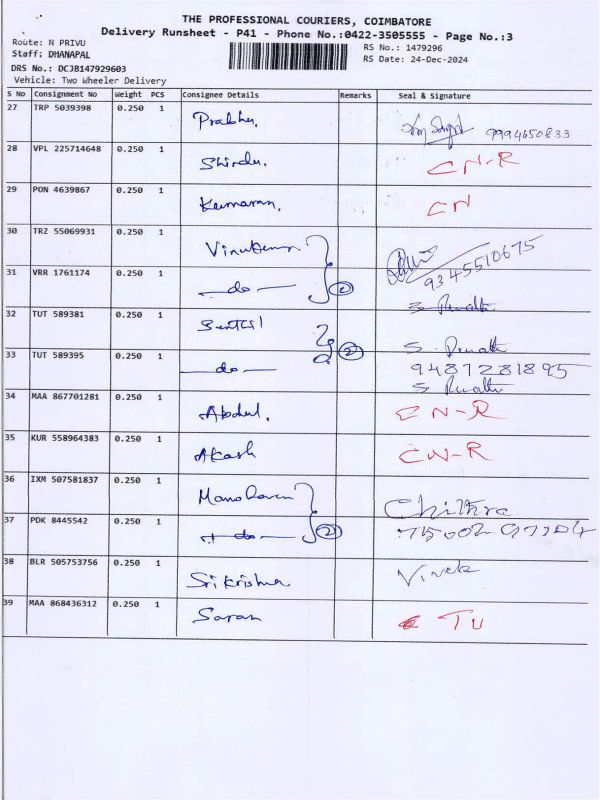 THE PROFESSIONAL COURIERS, COIMBATORE
Delivery Runsheet - P41 - Phone No.:0422-3505555 - Page No.:3
Route: N PRIVU
RS No.: 1479296
Staff: DHANAPAL
RS Date: 24-Dec-2024
DRS No.: DCJB147929603
Vehicle: Two Wheeler Delivery
S No Consignment No Weight PCS Consignee Details Remarks Seal & Signature
27 TRP 5039398 0.250 1 Prabhu. 9994650833
28 VPL 225714648 0.250 1 Shindu. CN-R
29 PON 4639867 0.250 1 Kumaran. CN
30 TRZ 55069931 0.250 1 9345510675
31 VRR 1761174 0.250 1 -do-
32 TUT 589381 0.250 1 Senthil
33 TUT 589395 0.250 1 -do- (2) 9487281895
34 MAA 867701281 0.250 1 Abdul. CN-R
35 KUR 558964383 0.250 1 Akash CN-R
36 IXM 507581837 0.250 1 Chithra
37 PDK 8445542 0.250 1 -do- (2)
38 BLR 505753756 0.250 1 Srikrishna Vivek
39 MAA 868436312 0.250 1 Saran TU